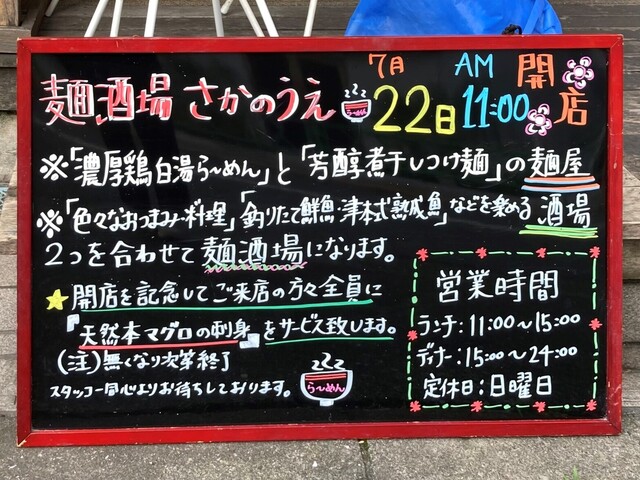 麺酒場 さかのうえ 7月22日 AM11:00 開店
※「濃厚鶏白湯ら〜めん」と「芳醇煮干しつけ麺」の麺屋
※「色々なおつまみ・料理」「釣りたて鮮魚・津本式熟成魚」などを楽める酒場
2つを合わせて麺酒場になります。
★開店を記念してご来店の方々全員に
『天然本マグロの刺身』をサービス致します。
(注)無くなり次第終了
スタッフ一同心よりお待ちしております。
ら〜めん
営業時間
ランチ:11:00〜15:00
ディナー:15:00〜24:00
定休日:日曜日